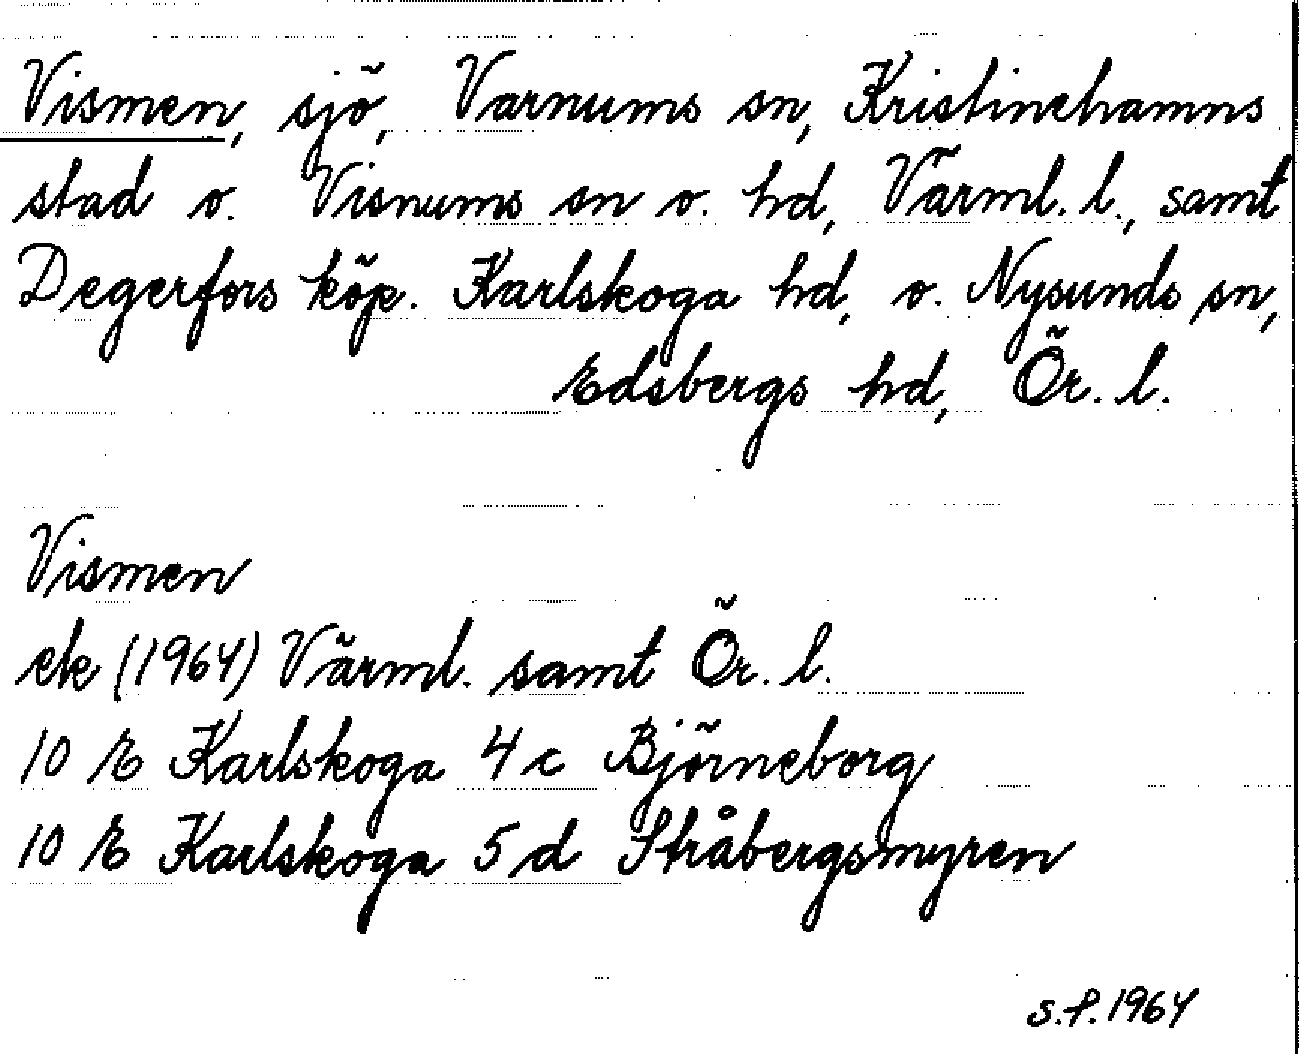 Vismen, sjö, Varnums sn, Kristinehamns
stad o. Visnums sn o. hd, Värml. l., samt
Degerfors köp. Karlskoga hd, o. Nysunds sn,
Edsbergs hd, Ör. l.
Vismen
ek (1964) Värml. samt Ör. l.
10 E Karlskoga 4 c Björneborg
10 E Karlskoga 5 d Stråbergsmyren
S.P. 1964